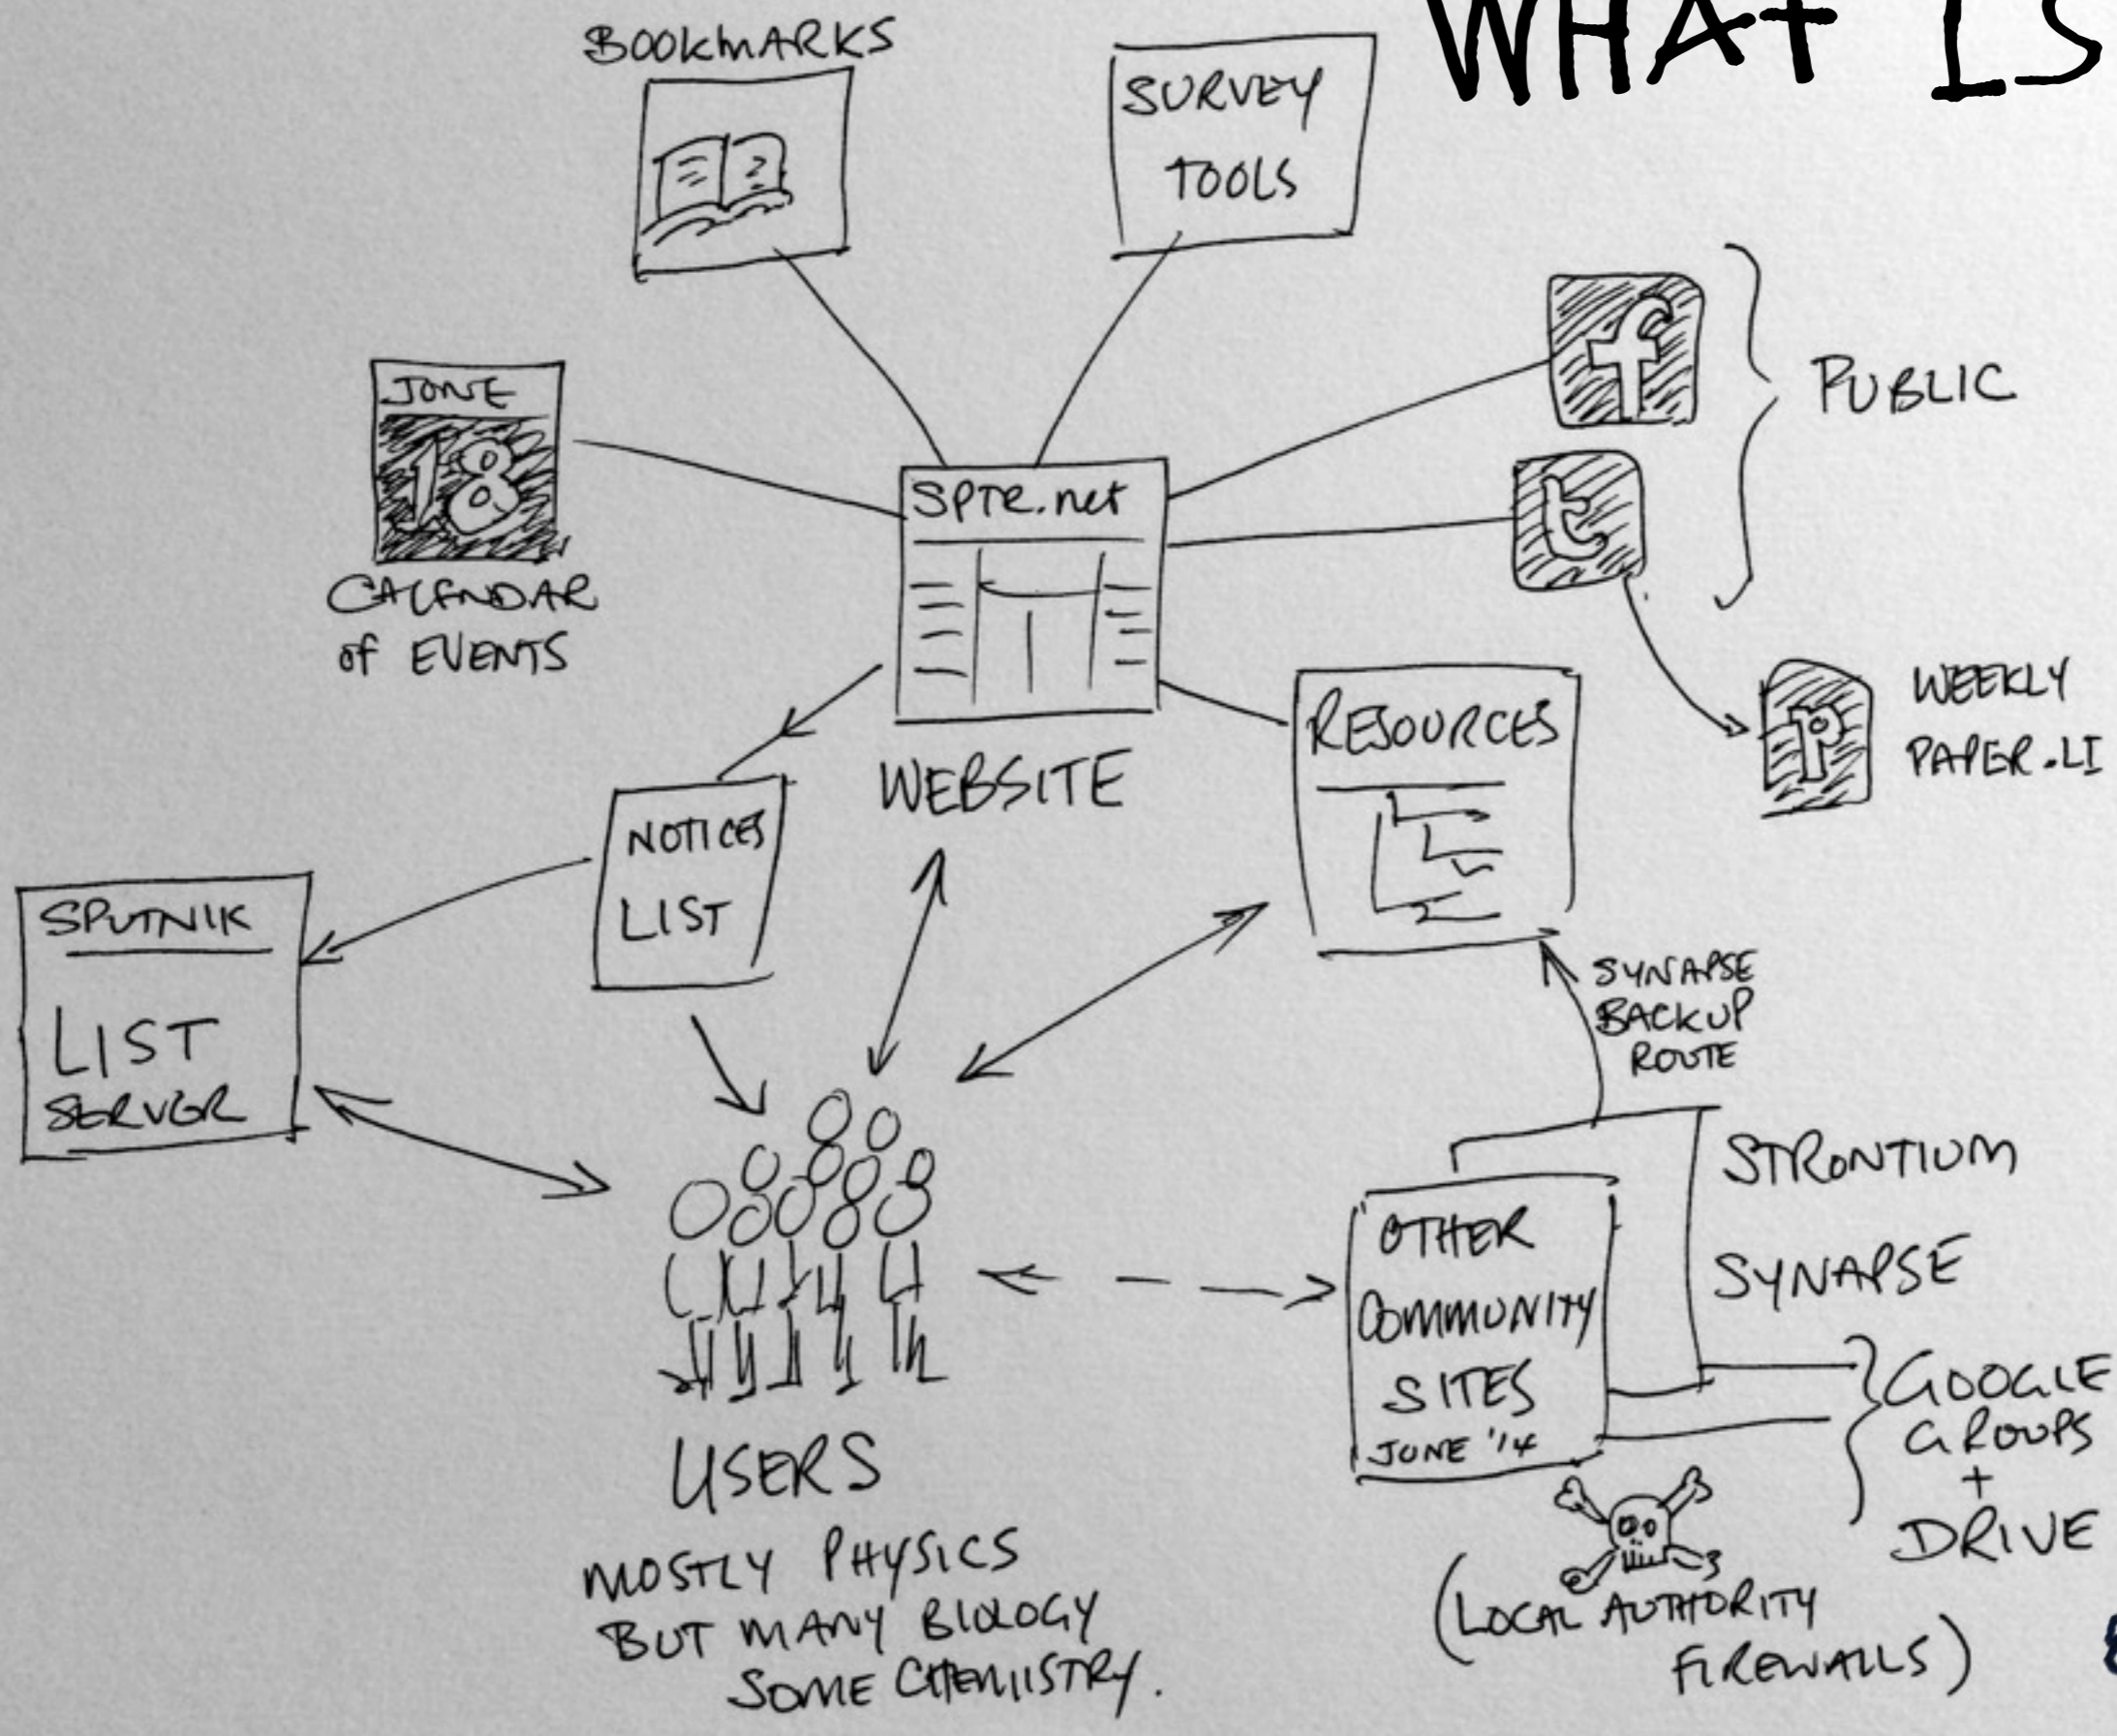 WHAT IS
BOOKMARKS
?
SURVEY
TOOLS
f
PUBLIC
JUNE
18
CALENDAR
of EVENTS
SPTR.net
t
WEBSITE
RESOURCES
P
WEEKLY
PAPER.LI
NOTICES
LIST
SPUTNIK
LIST
SERVER
SYNAPSE
BACKUP
ROUTE
STRONTIUM
SYNAPSE
OTHER
COMMUNITY
SITES
JUNE '14
GOOGLE
GROUPS
+
DRIVE
USERS
MOSTLY PHYSICS
BUT MANY BIOLOGY
SOME CHEMISTRY.
(LOCAL AUTHORITY
FIREWALLS)